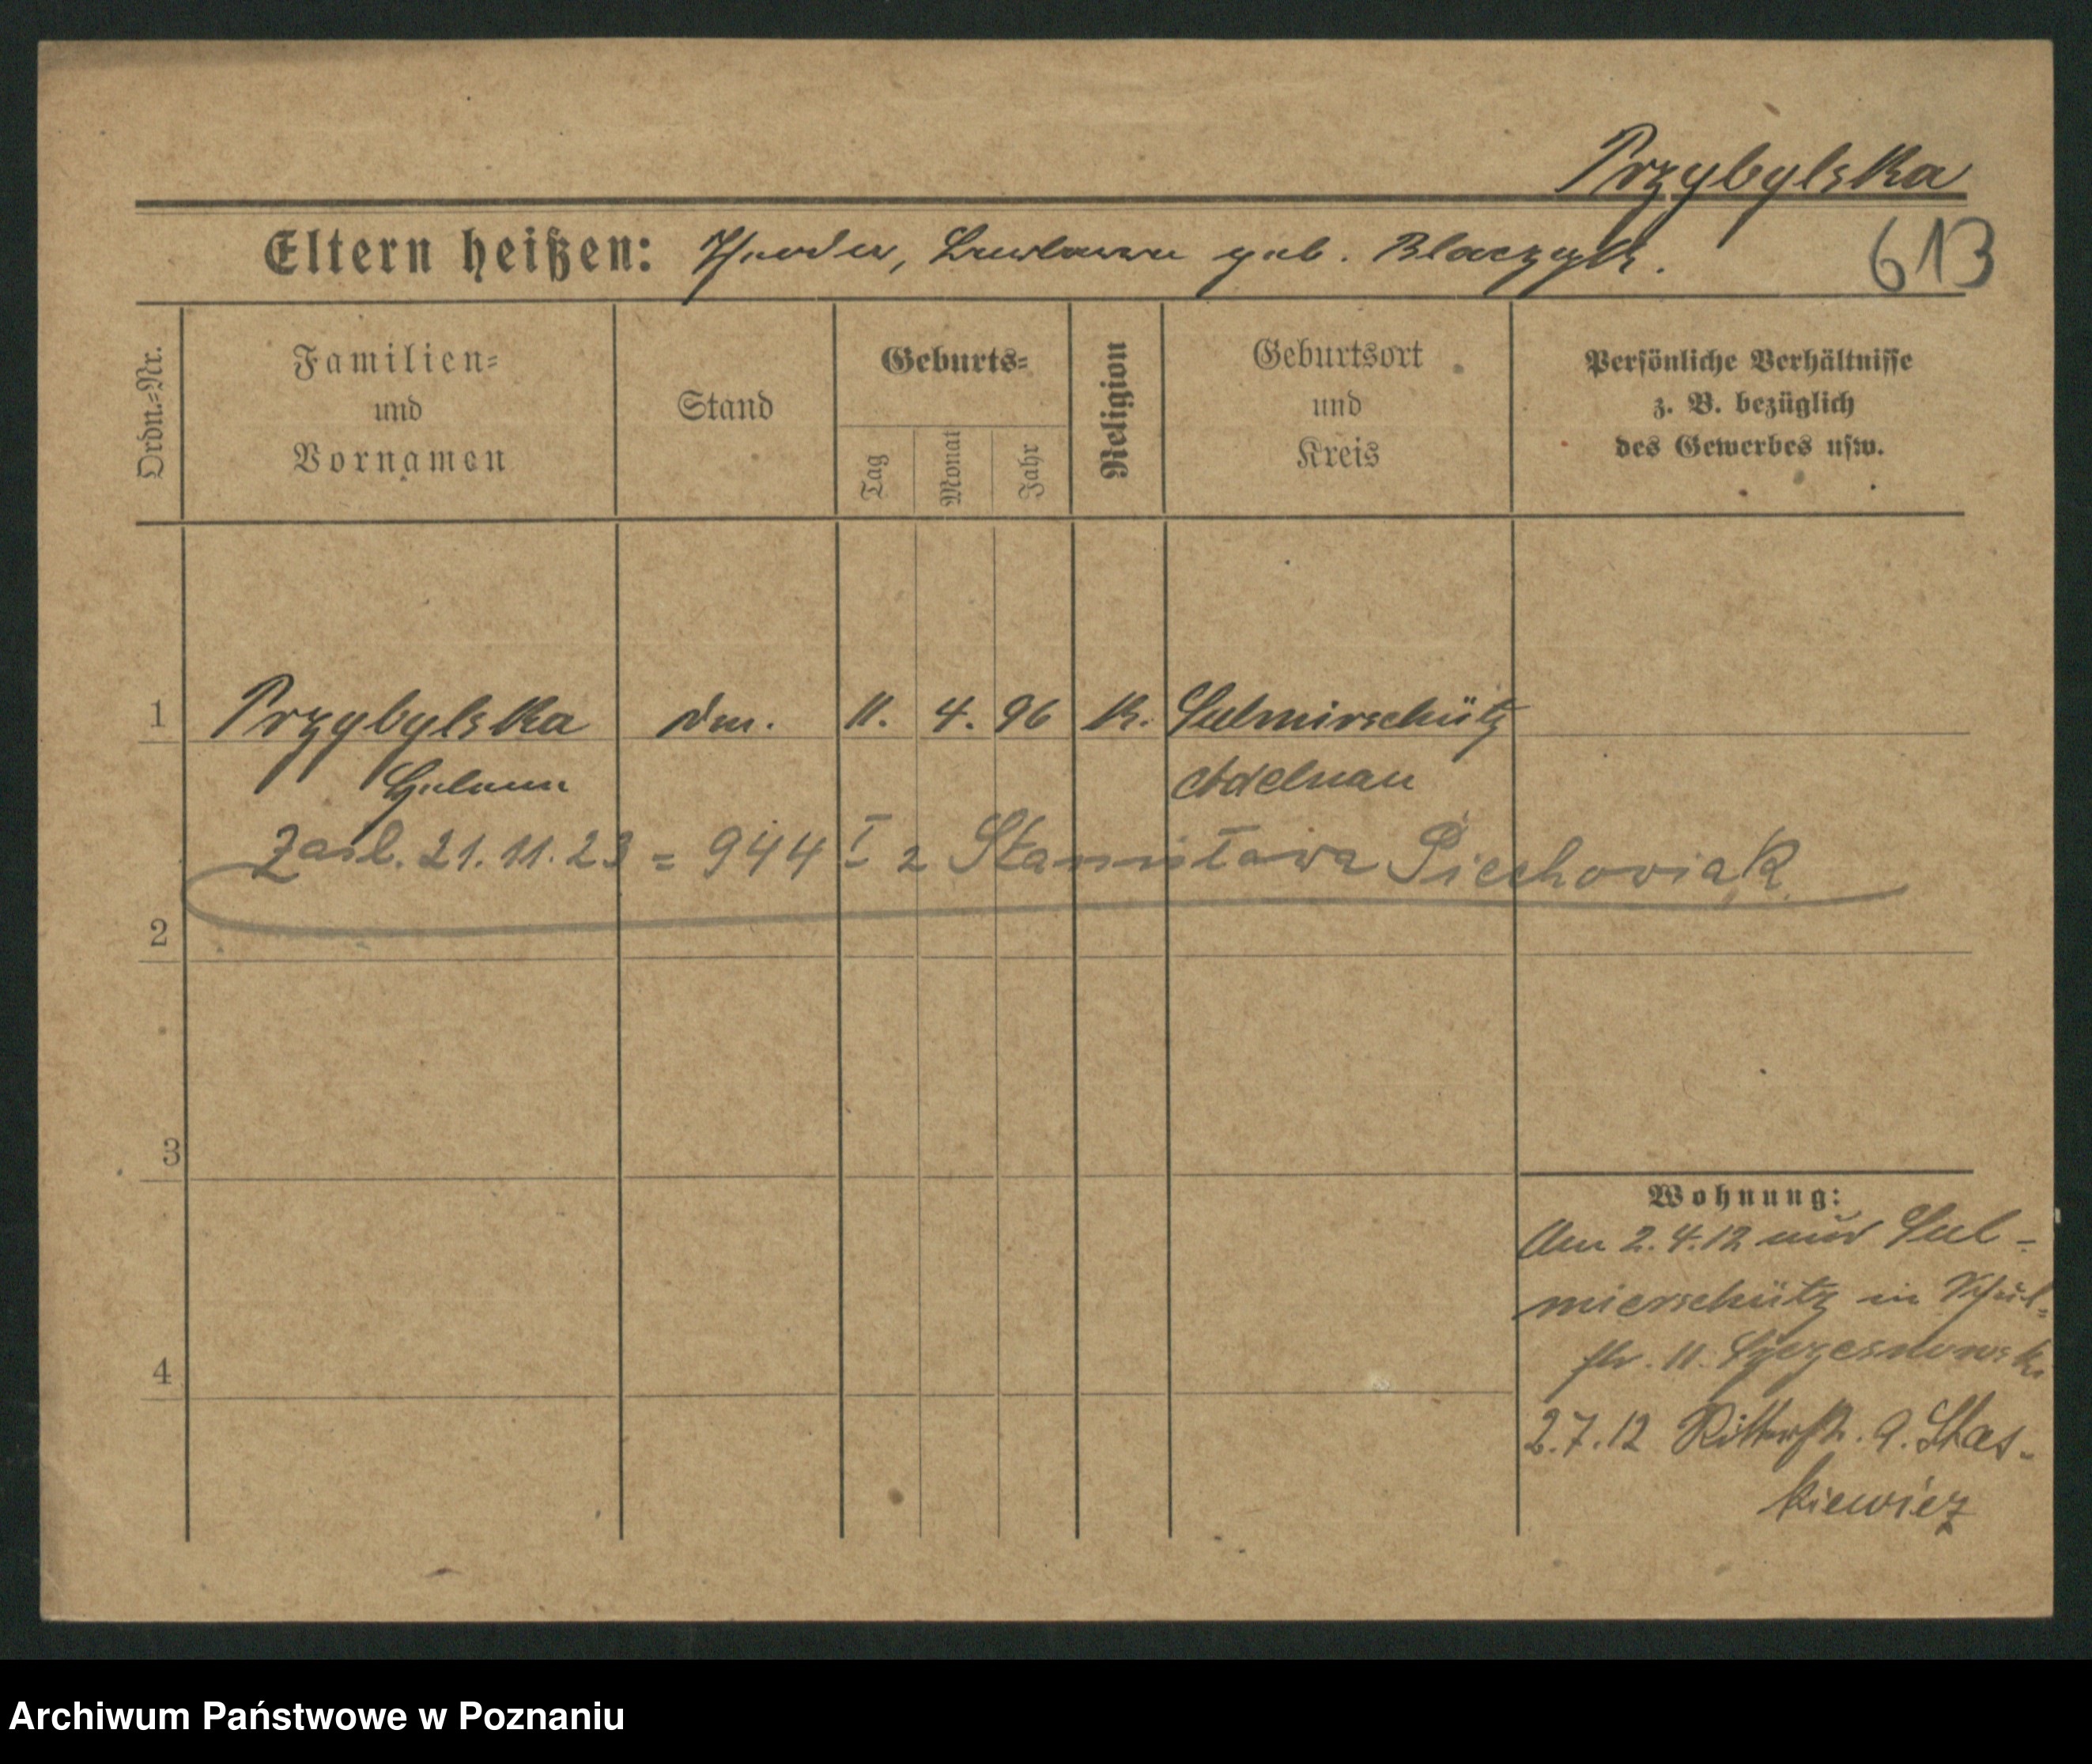 Przybylska
Eltern heißen: Theodor, geb. Blaczyk. 613
Ordn.=Nr.
Familien=
und
Vornamen
Stand
Geburts=
Tag
Monat
Jahr
Religion
Geburtsort
und
Kreis
Persönliche Verhältnisse
z. B. bezüglich
des Gewerbes usw.
1 Przybylska 11. 4. 96 K. Sulmirschütz
Helena Adelnau
Zaśl. 21.11.23 = 944 I z Stanisława Piechowiak
2
3
Wohnung:
Am 2.4.12 aus Sul-
mierschütz in Schul=
str. 11.
4
2.7.12 Ritterstr. 9. Stas-
kiewicz
Archiwum Państwowe w Poznaniu